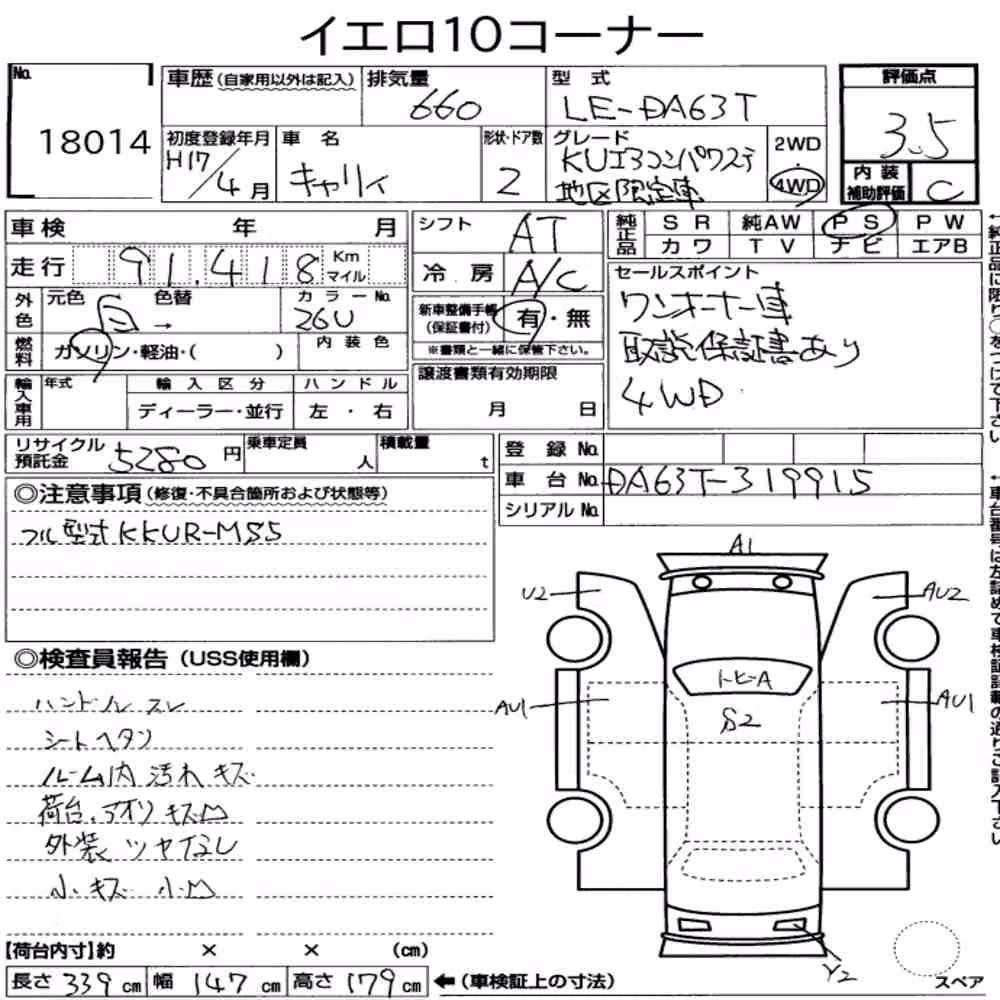 イエロ10コーナー
No.
18014
車歴(自家用以外は記入)
排気量
660
型 式
LE-DA63T
初度登録年月
H17/4月
車 名
キャリィ
形状・ドア数
2
グレード
KUエアコンパワステ
地区限定車
2WD
・
4WD
評価点
3.5
内 装
補助評価
C
車検 年 月
走行 91,418 Km
マイル
外色
元色 白 → 色替
カラーNo.
26U
燃料
ガソリン・軽油・( )
内 装 色
輸入車用
年式
輸 入 区 分
ディーラー・並行
ハ ン ド ル
左 ・ 右
シフト AT
冷 房 A/C
新車整備手帳
(保証書付)
有・無
※書類と一緒に保管下さい。
譲渡書類有効期限
月 日
純正品
S R 純AW P S P W
カ ワ T V ナ ビ エアB
セールスポイント
ワンオーナー車
取説保証書あり
4WD
←純正品に限り○をつけて下さい
リサイクル
預託金
5280円
乗車定員
人
積載量
t
登 録 No.
車 台 No. DA63T-319915
シリアルNo.
←車台番号は左詰めで車検証記載の通りご記入下さい
◎注意事項(修復・不具合箇所および状態等)
フル型式KKUR-MS5
◎検査員報告(USS使用欄)
ハンドルスレ
シートヘタリ
ルーム内 汚れ キズ
荷台,アオリ キズ凹
外装 ツヤなし
小キズ 小凹
A1
U2
AU2
トヒ-A
AU1
AU1
S2
Y2
スペア
【荷台内寸】約 × × (cm)
長さ 339 cm 幅 147 cm 高さ 179 cm ←(車検証上の寸法)